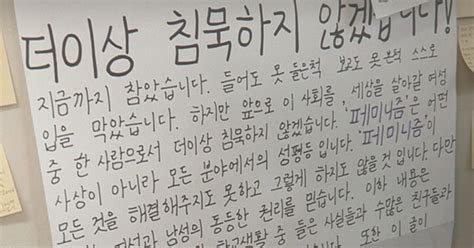 더이상 침묵하지 않겠습니다!
지금까지 참았습니다. 들어도 못 들은척 보고도 못 본척 스스로
입을 막았습니다. 하지만 앞으로 이 사회를, 세상을 살아갈 여성
중 한 사람으로서 더이상 침묵하지 않겠습니다. '페미니즘'은 어떤
사상이 아니라 모든 분야에서의 성평등 입니다. '페미니즘'이
모든 것을 해결해주지도 못하고 그렇게 하지도 않을 것 입니다. 다만
여성과 남성의 동등한 권리를 믿습니다. 이하 내용은
학교생활 중 들은 사실들과 수많은 친구들과
니다. 또한 이 글이